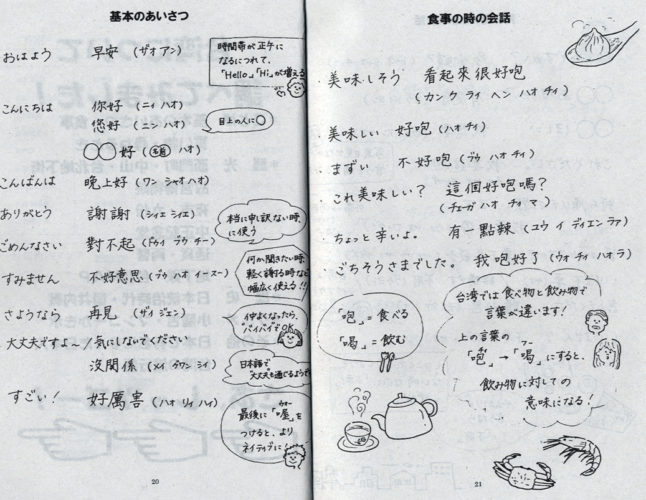 基本のあいさつ
おはよう 早安 (ザオ アン)
時間帯が正午に
なるにつれて、
「Hello」「Hi」が増える
こんにちは 你好 (ニィ ハオ)
您好 (ニン ハオ)
目上の人に○
○○好 (名前 ハオ)
こんばんは 晚上好 (ワン シャオ ハオ)
ありがとう 謝謝 (シィエ シィエ)
本当に申し訳ない時
に使う
ごめんなさい 對不起 (ドゥイ ブゥ チー)
すみません 不好意思 (ブゥ ハオ イースー)
何か聞きたい時、
軽く謝る時など
幅広く使える!!
さようなら 再見 (ザイ ジェン)
仲よくなったら、
バイバイでOK
大丈夫ですよ/気にしないでください
沒關係 (メイ グワン シィ)
日本語で
大丈夫も通じるよう
すごい! 好厲害 (ハオ リィ ハイ)
最後に「喔」を
つけると、より
ネイティブに
20
食事の時の会話
・美味しそう 看起來很好咆
(カン ク ライ ヘン ハオ チィ)
・美味しい 好咆 (ハオ チィ)
・まずい 不好咆 (ブゥ ハオ チィ)
・これ美味しい? 這個好咆嗎?
(チェーガ ハオ チィ マ)
・ちょっと辛いよ。 有一點辣 (ユウ イ ディエン ラァ)
・ごちそうさまでした。 我咆好了 (ウオ チィ ハオ ラ)
「咆」=食べる
「喝」=飲む
台湾では食べ物と飲み物で
言葉が違います!
上の言葉の
「咆」→「喝」にすると、
飲み物に対しての
意味になる!
21